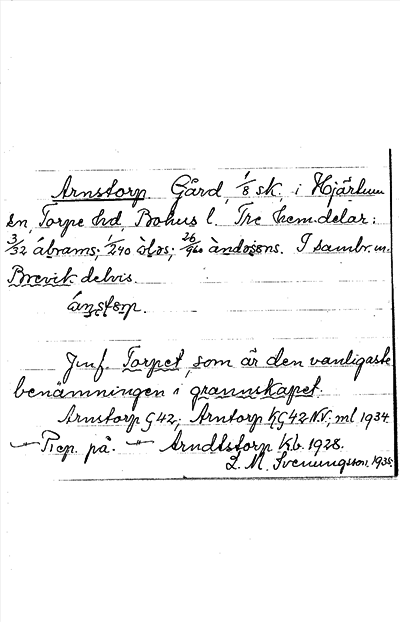 Arnstorp Gård, 1/8 sk. i Hjärtum
sn, Torpe hd, Bohus l. Tre hem.delar:
3/32 ábrams; 1/240 òlɔs; 26/960 àndɔṣens. I sambr. m.
Brevik delvis.
áṇstɔrp.
Jmf. Torpet, som är den vanligaste
benämningen i grannskapet.
Arnstorp G42; Arntorp KG42 N.V.; ml 1934.
Rep. på. Arndtstorp Kb. 1928.
L. M. Svenungsson, 1935.